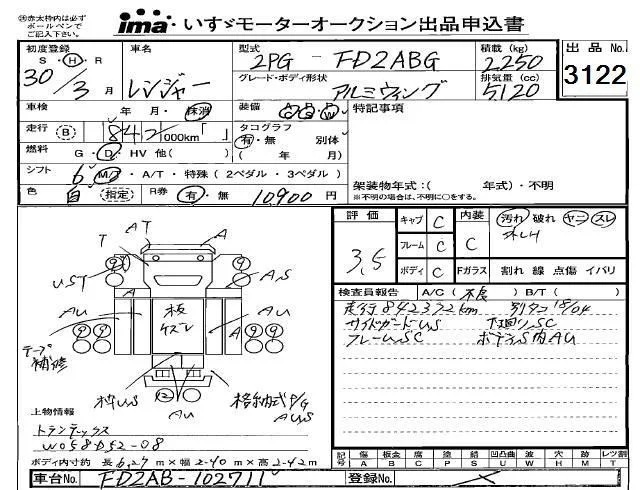 ㊟赤太枠内は必ず
ボールペンで
ご記入下さい。
ima いすゞモーターオークション出品申込書
初度登録 車名 型式 2PG - FD2ABG 積載 (kg) 2,250 出品 No.
S・H・R 30年 3月 レンジャー グレード・ボディ形状 アルミウィング 排気量 (cc) 5,120 3122
車検 年 月・抹消 装備 特記事項
走行 B 842,000km「 」 タコグラフ
有・無 別体
燃料 G・D・HV 他( ) ( 年 月)
シフト 6 M/T・A/T・特殊(2ペダル・3ペダル)
色 白 (指定) R券 有・無 10,900 円
架装物年式:( 年式)・不明
※不明の場合は、不明に○をする。
評価 3.5
キャブ C 内装 C 汚れ 破れ ヤニ スレ
フレーム C
ボディ C Fガラス 割れ 線 点傷 イバリ
検査員報告 A/C(不良) B/T( )
走行842372km 別タコ18/04
サイドガードUS 下廻りSC
フレームSC ボデーS内AU
AT
T A
UST AS
AU 板 ケズレ AU
A
テープ補修
枠US AU 格納式P/G AUS
上物情報
トランテックス
W058D52-08
ボディ内寸約 長6.27m×幅2.40m×高2.42m
記号 傷 A 板金 B 腐 C 塗 P 錆 S 凹凸曲 U 歪 W 穴 H 跡 M レツ割 T
車台No. FD2AB-102711 登録No.